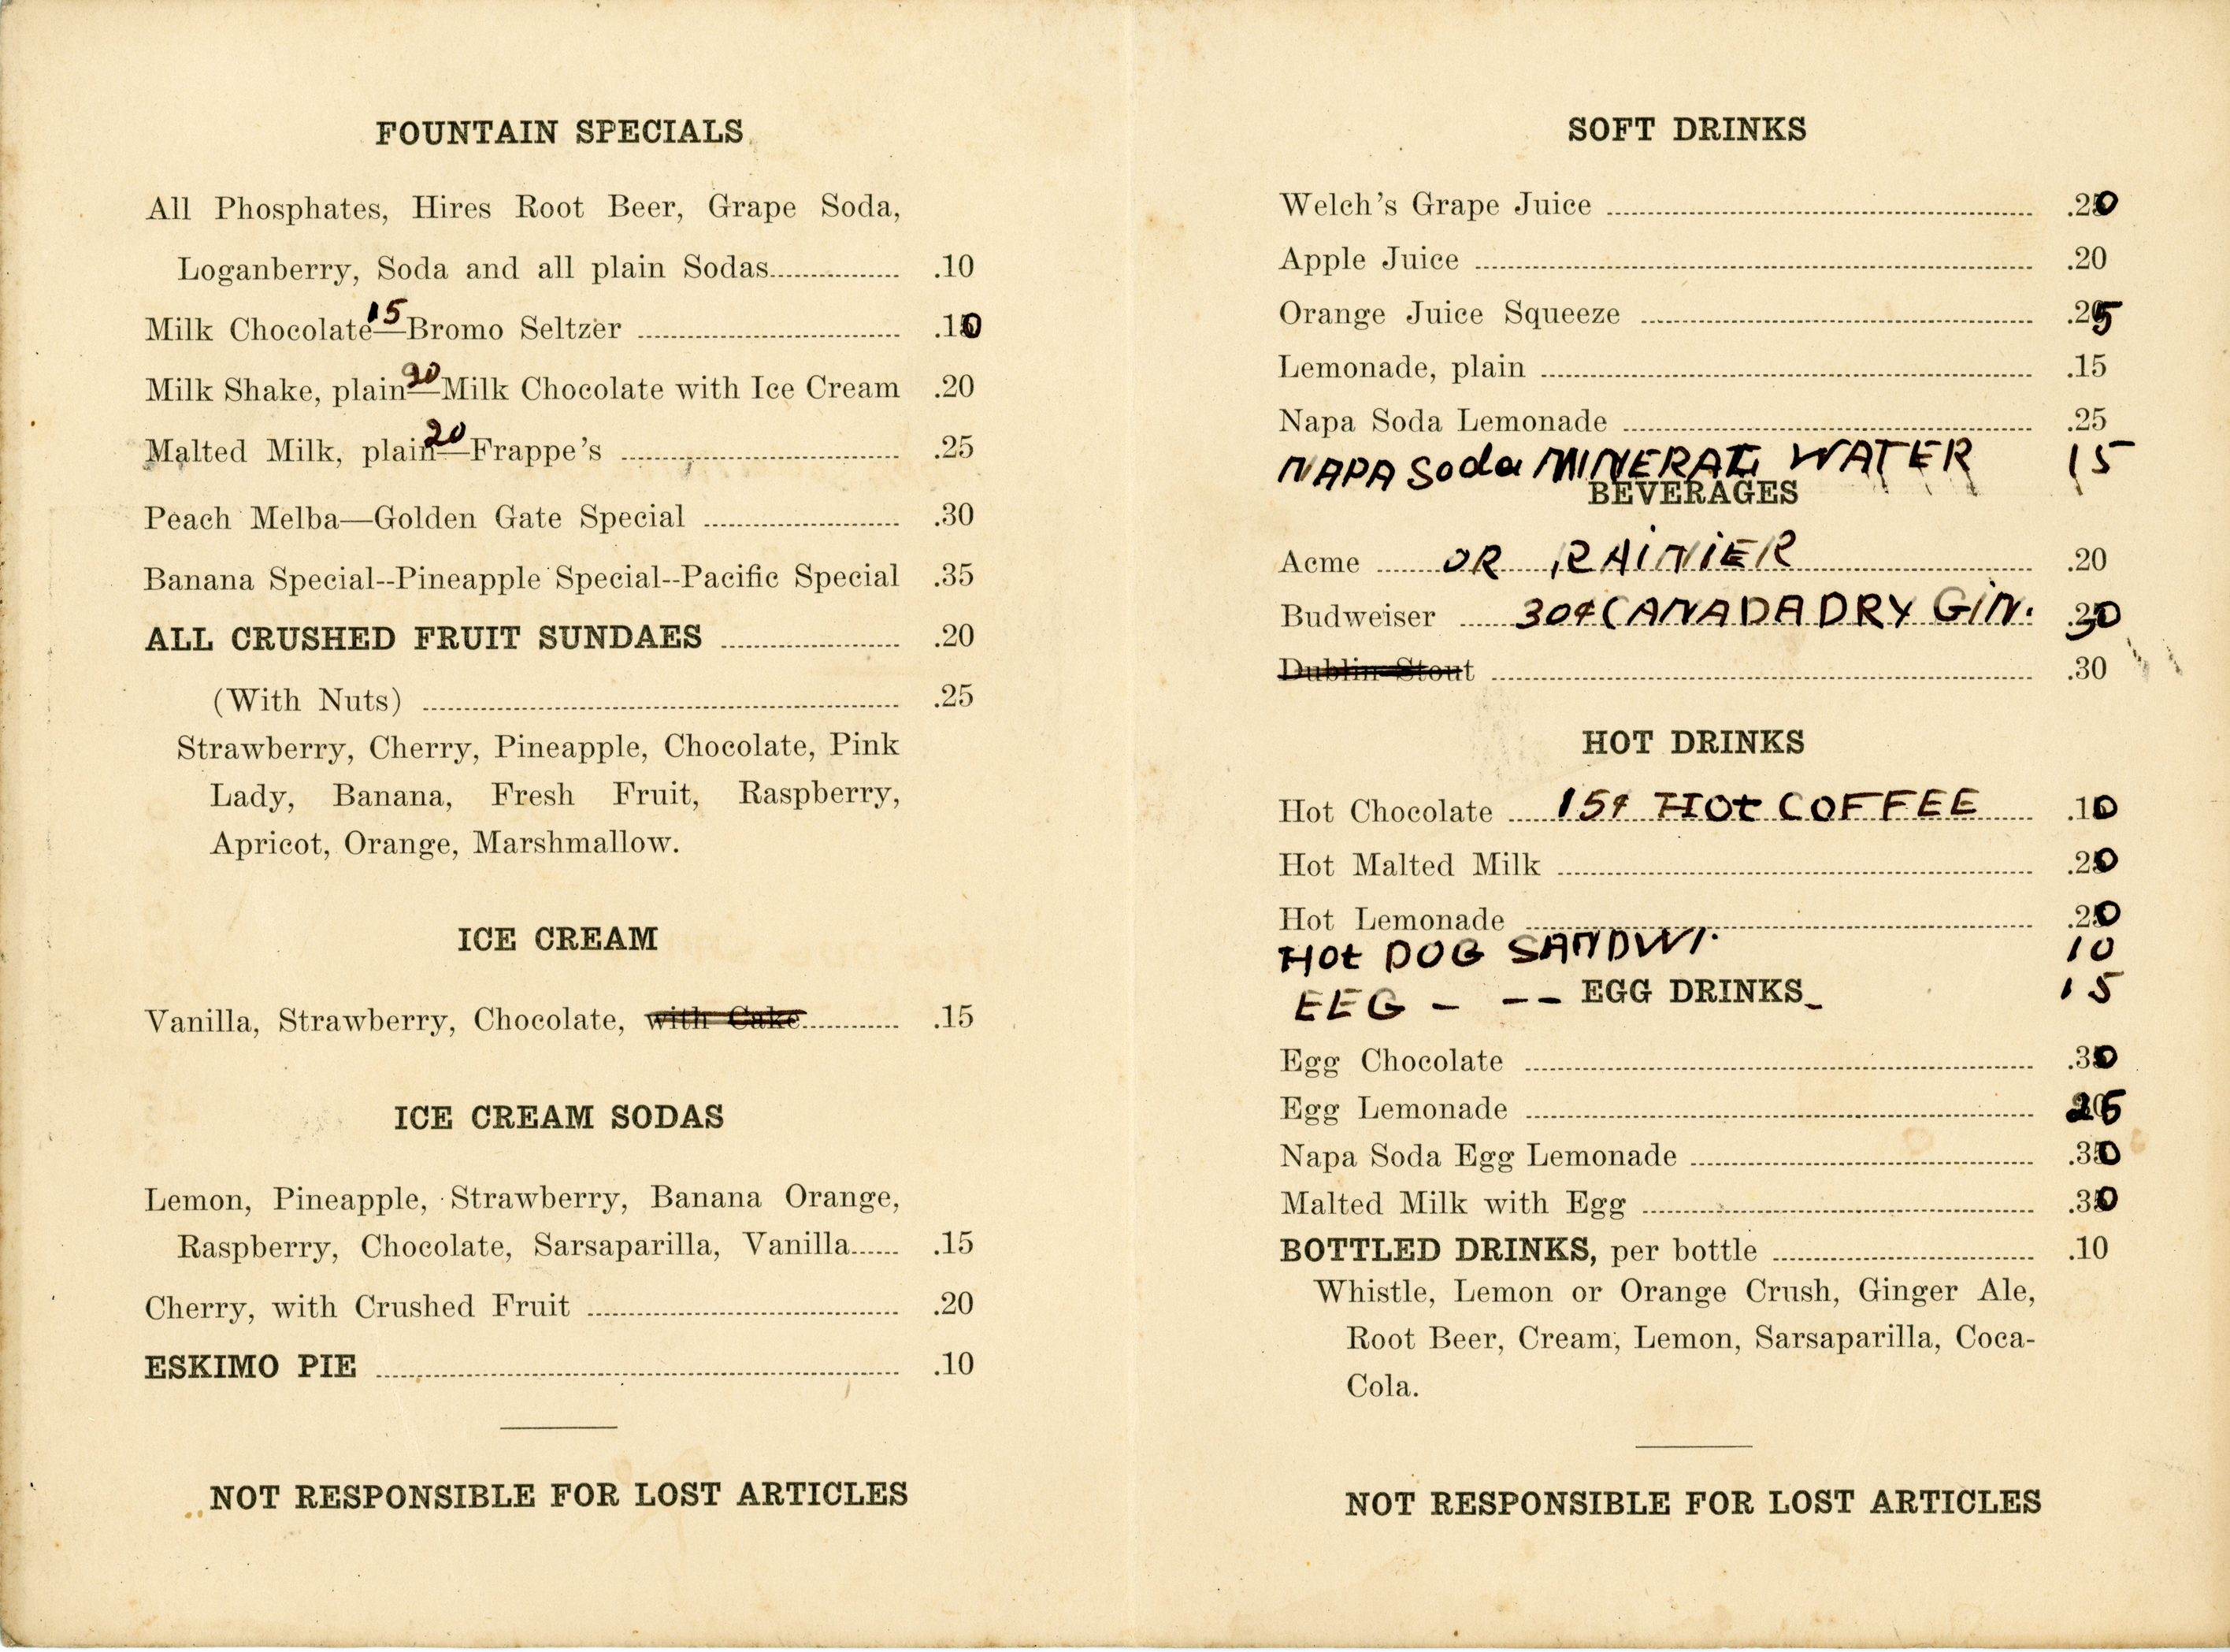 FOUNTAIN SPECIALS
All Phosphates, Hires Root Beer, Grape Soda,
Loganberry, Soda and all plain Sodas .10
15
Milk Chocolate—Bromo Seltzer .10
20
Milk Shake, plain—Milk Chocolate with Ice Cream .20
20
Malted Milk, plain—Frappe's .25
Peach Melba—Golden Gate Special .30
Banana Special--Pineapple Special--Pacific Special .35
ALL CRUSHED FRUIT SUNDAES .20
(With Nuts) .25
Strawberry, Cherry, Pineapple, Chocolate, Pink
Lady, Banana, Fresh Fruit, Raspberry,
Apricot, Orange, Marshmallow.
ICE CREAM
Vanilla, Strawberry, Chocolate, with Cake .15
ICE CREAM SODAS
Lemon, Pineapple, Strawberry, Banana Orange,
Raspberry, Chocolate, Sarsaparilla, Vanilla .15
Cherry, with Crushed Fruit .20
ESKIMO PIE .10
NOT RESPONSIBLE FOR LOST ARTICLES
SOFT DRINKS
Welch's Grape Juice .20
Apple Juice .20
Orange Juice Squeeze .25
Lemonade, plain .15
Napa Soda Lemonade .25
NAPA Soda MINERAL WATER 15
BEVERAGES
Acme OR RAINIER .20
Budweiser 30¢ CANADA DRY GIN. .30
Dublin Stout .30
HOT DRINKS
Hot Chocolate 15¢ HOt COFFEE .10
Hot Malted Milk .20
Hot Lemonade .20
HOt DOG SANDWI. 10
EEG - -- 15
EGG DRINKS
Egg Chocolate .30
Egg Lemonade 25
Napa Soda Egg Lemonade .30
Malted Milk with Egg .30
BOTTLED DRINKS, per bottle .10
Whistle, Lemon or Orange Crush, Ginger Ale,
Root Beer, Cream, Lemon, Sarsaparilla, Coca-
Cola.
NOT RESPONSIBLE FOR LOST ARTICLES